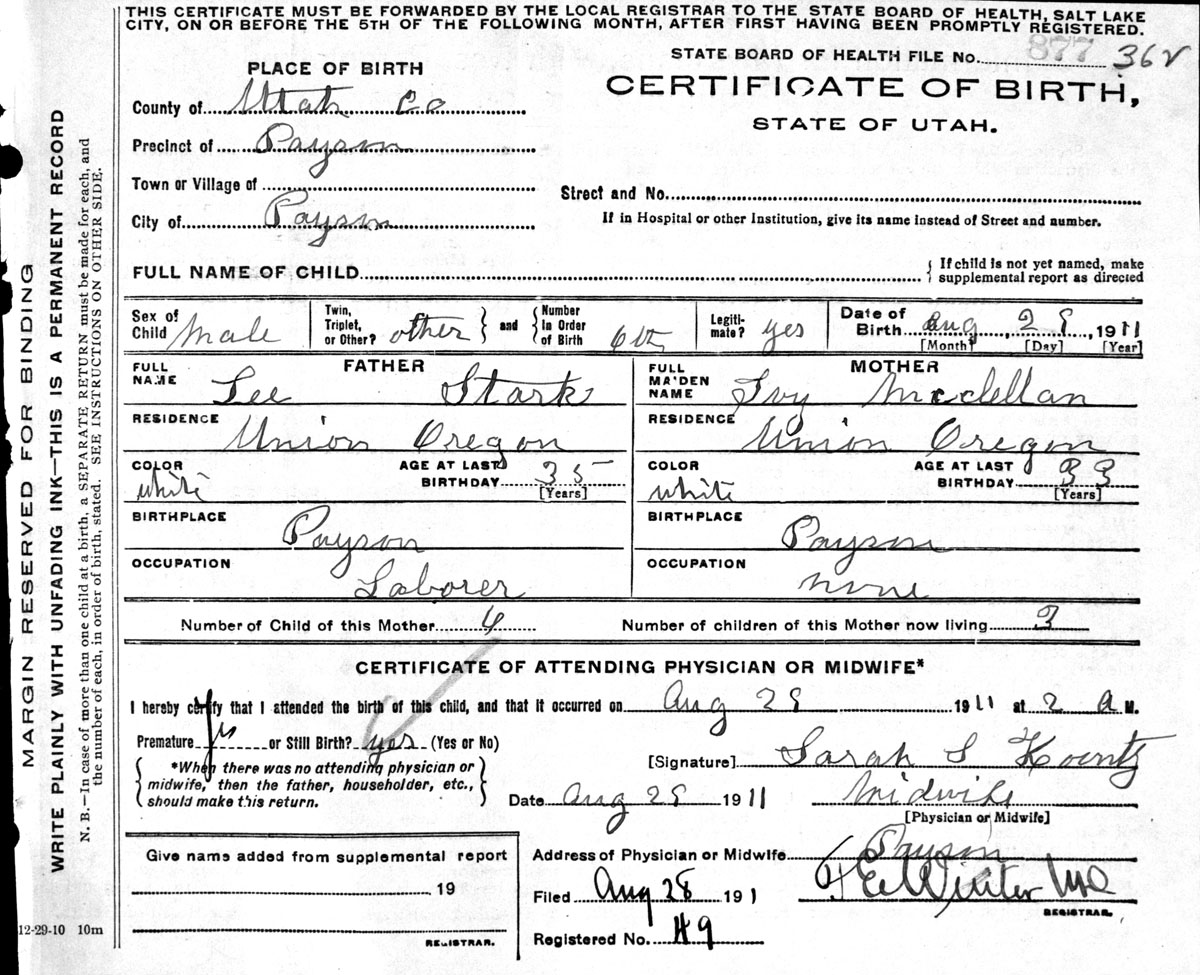 THIS CERTIFICATE MUST BE FORWARDED BY THE LOCAL REGISTRAR TO THE STATE BOARD OF HEALTH, SALT LAKE
CITY, ON OR BEFORE THE 5TH OF THE FOLLOWING MONTH, AFTER FIRST HAVING BEEN PROMPTLY REGISTERED.
STATE BOARD OF HEALTH FILE No. 877 362
PLACE OF BIRTH
CERTIFICATE OF BIRTH,
STATE OF UTAH.
County of Utah Co
Precinct of Payson
Town or Village of
Street and No.
City of Payson
If in Hospital or other Institution, give its name instead of Street and number.
FULL NAME OF CHILD
{ If child is not yet named, make
supplemental report as directed
Sex of Child Male
Twin, Triplet, or Other? other } and { Number In Order of Birth 6th
Legiti-mate? yes
Date of Birth Aug 28, 1911
[Month] [Day] [Year]
FATHER
FULL NAME Lee Stark
MOTHER
FULL MAIDEN NAME Ivy McClellan
RESIDENCE Union Oregon
RESIDENCE Union Oregon
COLOR white
AGE AT LAST BIRTHDAY 35 [Years]
COLOR white
AGE AT LAST BIRTHDAY 33 [Years]
BIRTHPLACE Payson
BIRTHPLACE Payson
OCCUPATION Laborer
OCCUPATION None
Number of Child of this Mother 4
Number of children of this Mother now living 3
CERTIFICATE OF ATTENDING PHYSICIAN OR MIDWIFE*
I hereby certify that I attended the birth of this child, and that it occurred on Aug 28 1911 at 2 a M.
Premature yes or Still Birth? yes (Yes or No)
[Signature] Sarah S Koontz
{ *When there was no attending physician or
midwife, then the father, householder, etc.,
should make this return. }
Date Aug 28 1911
Midwife
[Physician or Midwife]
Give name added from supplemental report
19
REGISTRAR.
Address of Physician or Midwife Payson
Filed Aug 28 1911
Winter MD
REGISTRAR.
Registered No. 49
12-29-10 10m
MARGIN RESERVED FOR BINDING
WRITE PLAINLY WITH UNFADING INK—THIS IS A PERMANENT RECORD
N. B.—In case of more than one child at a birth, a SEPARATE RETURN must be made for each, and
the number of each, in order of birth, stated. SEE INSTRUCTIONS ON OTHER SIDE.